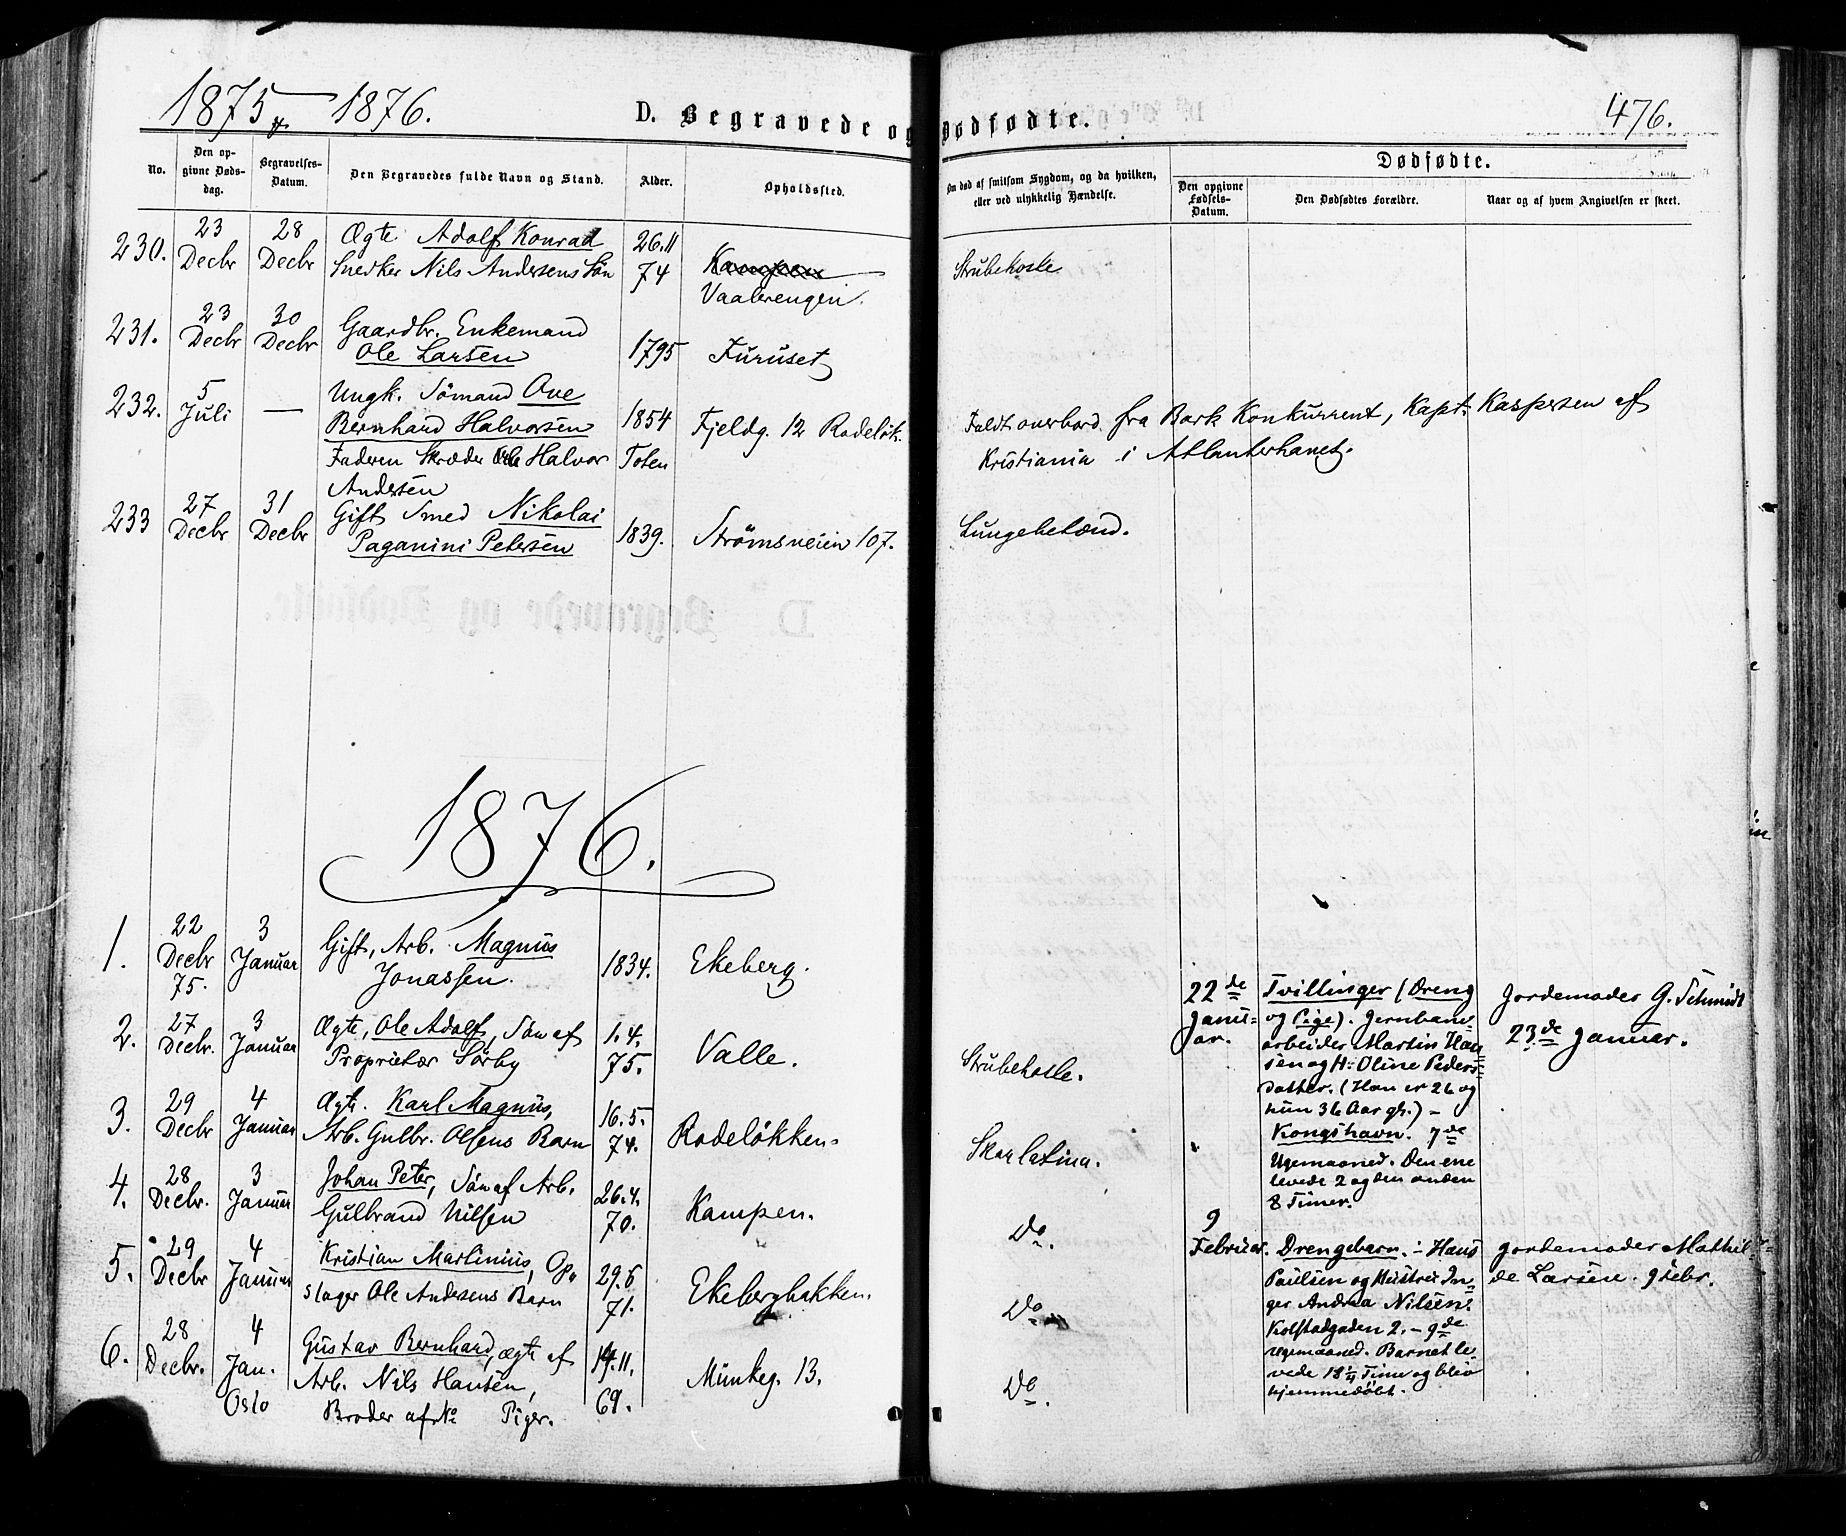 1875 - 1876.
D. Begravede og Dødfødte.
476.
No.
Den op-
givne Døds-
dag.
Begravelses-
Datum.
Den Begravedes fulde Navn og Stand.
Alder.
Opholdssted.
Om død af smitsom Sygdom, og da hvilken,
eller ved ulykkelig Hændelse.
Dødfødte.
Den opgivne
Fødsels-
Datum.
Den Dødfødtes Forældre.
Naar og af hvem Angivelsen er skeet.
230.
23
Decbr
28
Decbr
Ægte Adolf Konrad
Snedker Nils Andersens Søn
26.11
74
Kampen
Vaalerengen.
Strubehoste
231.
23
Decbr
30
Decbr
Gaardbr. Enkemand
Ole Larsen
1795
Furuset
232.
5
Juli
—
Ungk. Sømand Ove
Bernhard Halvorsen
Faderen Skræder Halvor
Andersen
1854
Toten
Fjeldg. 12 Rodeløk.
Faldt overbord fra Bark Konkurrent, Kapt. Kaspersen af
Kristiania i Atlanterhavet.
233
27
Decbr
31
Decbr
Gift Smed Nikolai
Paganini Petersen
1839.
Strømsveien 107.
Lungebetænd.
1876.
1.
22
Decbr
75.
3
Januar
Gift, Arb. Magnus
Jonassen.
1834.
Ekeberg.
2.
27
Decbr.
3
Januar
Ægte, Ole Adolf, Søn af
Proprietær Sörby
1.4.
75.
Valle.
Strubehoste.
3.
29
Decbr
4
Januar
Ægte. Karl Magnus,
Arb. Gulbr. Olsens Barn
16.5.
74.
Rodeløkken.
Skarlatina.
4.
28
Decbr.
3
Januar
Johan Peter, Søn af Arb.
Gulbrand Nilsen
26.4.
70.
Kampen.
Do.
5.
29
Decbr
4
Januar
Kristian Martinius, Op-
slager Ole Andersens Barn
29.5
71.
Ekebergbakken.
Do
6.
28
Decbr.
4
Jan.
Oslo
Gustav Bernhard, ægte af
Arb. Nils Hansen,
Broder af No Piger.
14.11.
69.
Munkeg. 13.
Do.
22de
Janu-
ar.
Tvillinger (Dreng
og Pige). Jernbane-
arbeider Martin Han-
sen og H: Oline Peders-
datter. (Han er 26 og
hun 36 Aar gl.) -
Kongshavn. 7de
Ugemaaned. Den ene
levede 2 og den anden
8 Timer.
Jordemoder G. Schmidt
23de Januar.
9
Februar.
Drengebarn. - Hans
Paulsen og Hustru In-
ger Andrea Nilsen.
Kolstadgaden 2. - 9de
Ugemaaned. Barnet le-
vede 18 1/4 Time og blev
hjemmedöbt.
Jordemoder Mathil-
de Larsen. 9 Febr.